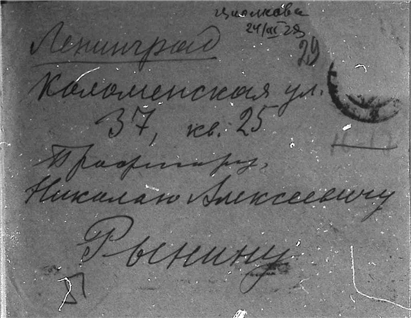 Циолковс
24/III 28
29
Ленинград
Коломенская ул.
37, кв. 25
Профессору,
Николаю Алексеевичу
Рынину